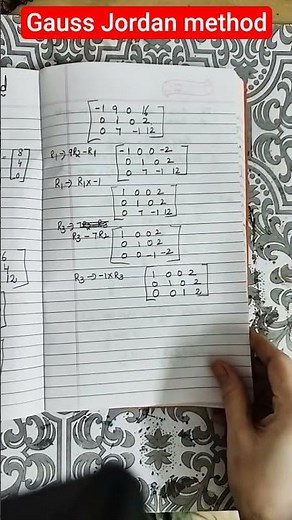 Gauss Jordan method
-1 9 0 16
0 1 0 2
0 7 -1 12
R1 → 9R2 - R1
-1 0 0 -2
0 1 0 2
0 7 -1 12
R1 → R1 x -1
1 0 0 2
0 1 0 2
0 7 -1 12
R3 →
R3 - 7R2
1 0 0 2
0 1 0 2
0 0 -1 -2
R3 → -1 x R3
1 0 0 2
0 1 0 2
0 0 1 2
= 8
4
0
6
4
2